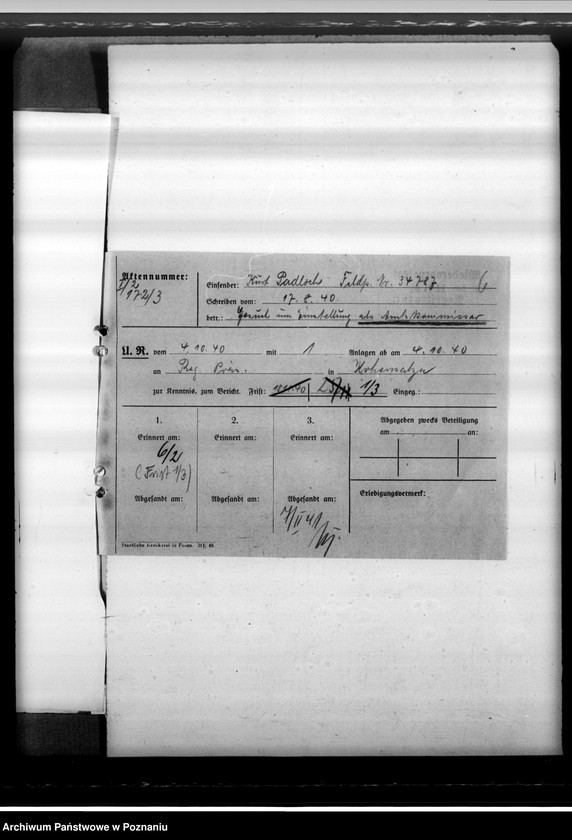 Aktennummer:
I/2
172/3
Einsender: Kurt Padlochs Feldp. Nr. 34787
Schreiben vom: 17. 8. 40.
betr.: Gesuch um Einstellung als Amtskommissar
U. R. vom 4. 10. 40 mit 1 Anlagen ab am 4. 10. 40
an Reg Präs. in Hohensalza
zur Kenntnis, zum Bericht. Frist: 1/3 Eingeg.:
1. 2. 3. Abgegeben zwecks Beteiligung
am an:
Erinnert am: Erinnert am: Erinnert am:
6/2
(Frist 1/3)
Abgesandt am: Abgesandt am: Abgesandt am: Erledigungsvermerk:
7/II 41
Staatliche Druckerei in Posen.
Archiwum Państwowe w Poznaniu